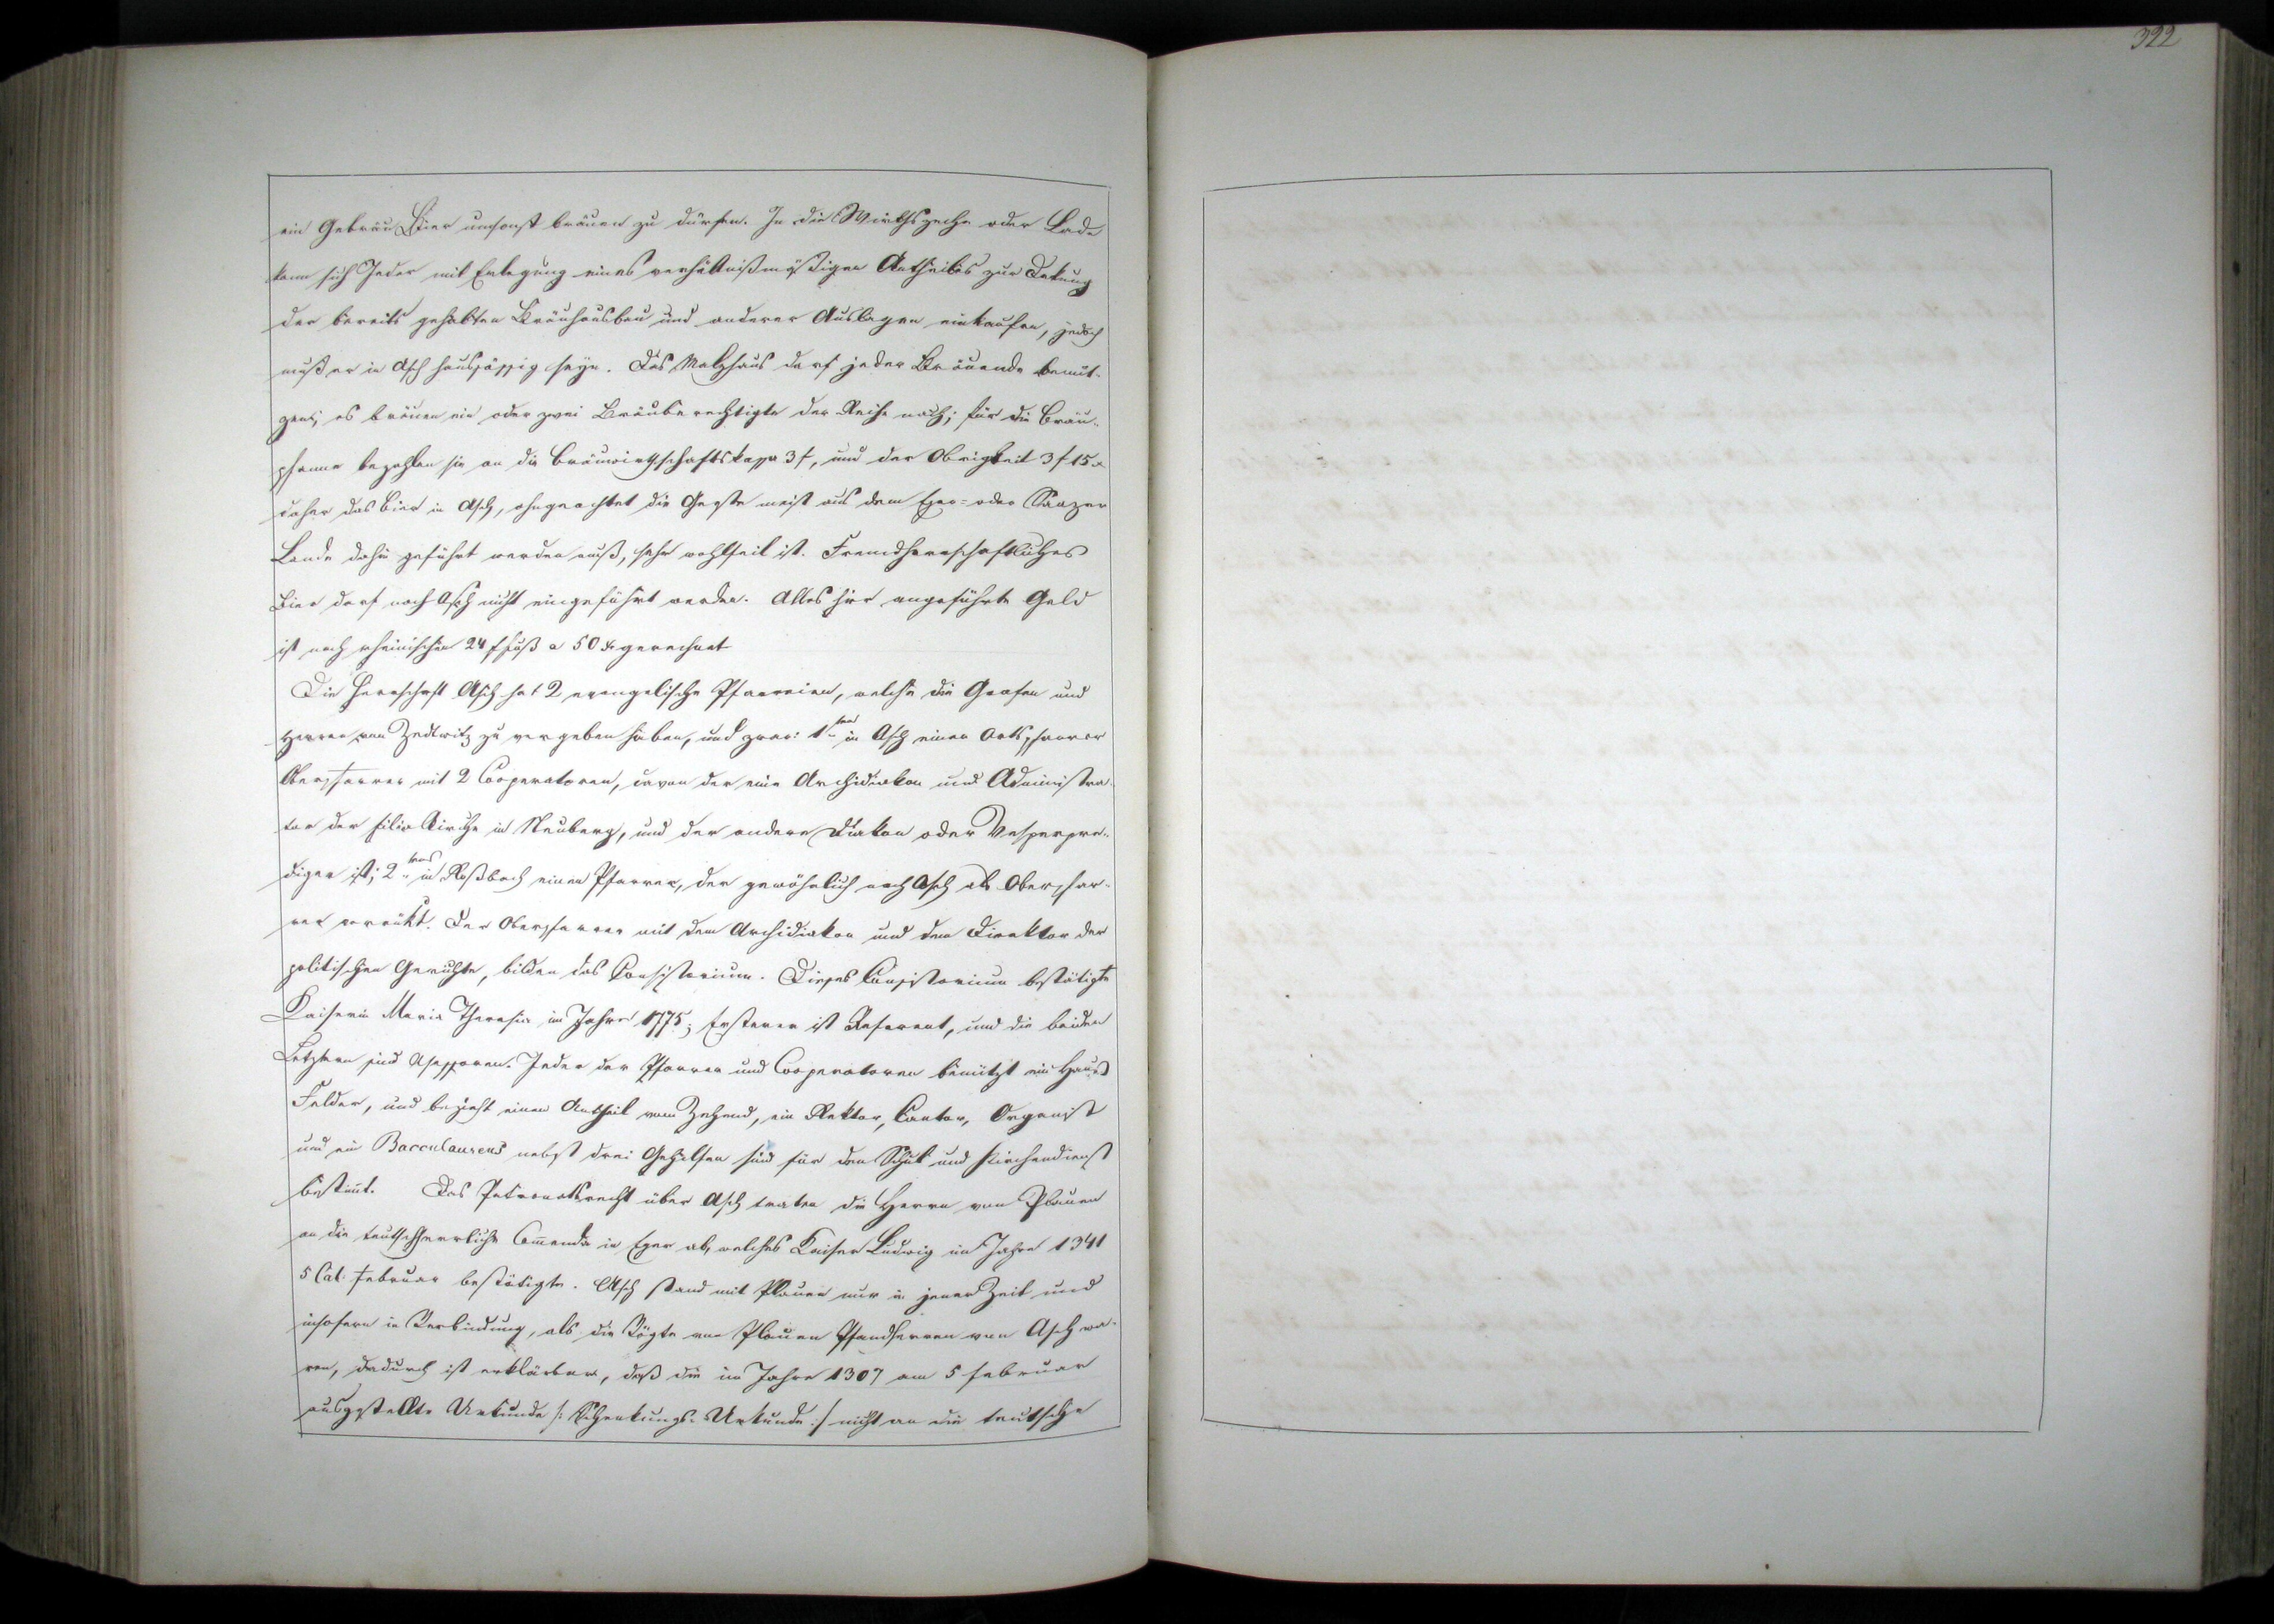 322
ein Gebräu Bier umsonst bräuen zu dürfen. In die Wirthszeche oder Lade
kann sich Jeder mit Erlegung eines verhältnißmäßigen Antheiles zur Dekung
der bereits gehabten Bräuhausbau und anderer Auslagen einkaufen, jedoch
muß er in Asch hausässig seyn. Das Malzhaus darf jeder Bräuende benüt-
zen; es bräuen ein oder zwei Bräuberechtigte der Reihe nach; für die Bräu-
pfanne bezahlen sie an die Bräuwirthschaftskassa 3 f, und der Obrigkeit 3 f 15 x
daher das Bier in Asch, ohngeachtet die Gerste meist aus dem Eger- oder Saazer
Lande dahin geführt werden muß, sehr wohlfeil ist. Fremdherrschaftliches
Bier darf nach Asch nicht eingeführt werden. Alles hier angeführte Geld
ist nach rheinischen 24 f Fuß a 50 x gerechnet
Die Herrschaft Asch hat 2 evangelische Pfarreien, welche die Grafen und
Herren von Zedtwitz zu vergeben haben, und zwar: 1tens in Asch einen Ortspfarrer
Oberpfarrer mit 2 Cooperatoren, davon der eine Archidiakon und Administra-
tor der Filialkirche in Neuberg, und der andere Diakon oder Vesperpre-
diger ist; 2tens in Roßbach einen Pfarrer, der gewöhnlich nach Asch als Oberpfar-
rer vorrükt. Der Oberpfarrer mit dem Archidiakon und dem Direktor der
politischen Gerichte, bilden das Consistorium. Dieses Consistorium bestätigte
Kaiserin Maria Theresia im Jahre 1775; Ersterer ist Referent, und die beiden
Letztern sind Assessoren. Jeder der Pfarrer und Cooperatoren benützt ein Haus
Felder, und bezieht einen Antheil vom Zehend, ein Rektor, Cantor, Organist
und ein Bacculaureus nebst drei Gehilfen sind für den Schul und Kirchendienst
bestimt. Das Patronatsrecht über Asch traten die Herrn von Plauen
an die teutschherrliche Comenda in Eger ab, welches Kaiser Ludwig im Jahre 1341
5 Cal. Februar bestätigte. Asch stand mit Plauen nur in jener Zeit und
insofern in Verbindung, als die Vögte von Plauen Pfandherren von Asch wa-
ren, dadurch ist erklärbar, daß die im Jahre 1307 am 5 Februar
ausgestellte Urkunde /: Schenkungs-Urkunde :/ nicht an die teutsche